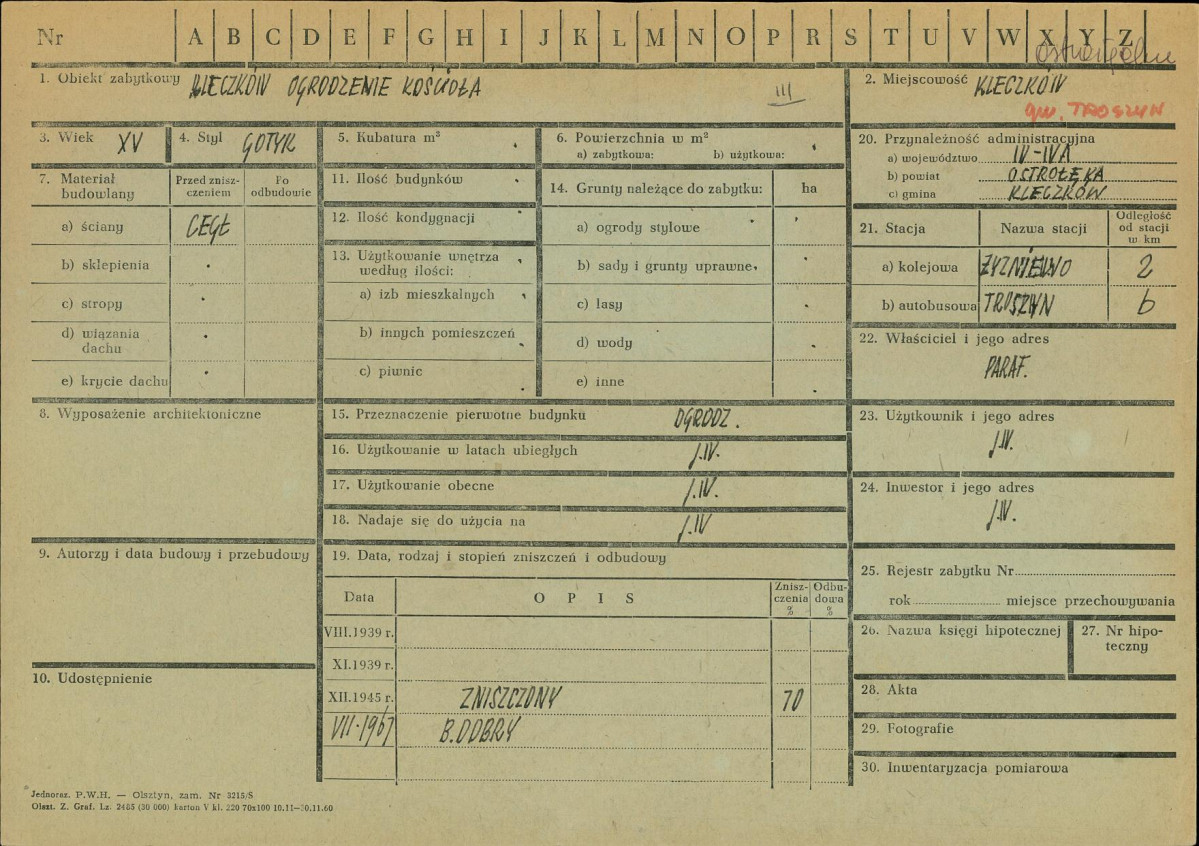 Nr A B C D E F G H I J K L M N O P R S T U V W X Y Z
1. Obiekt zabytkowy KLECZKÓW OGRODZENIE KOŚCIOŁA III
2. Miejscowość KLECZKÓW
gm. TROSZYN
3. Wiek XV
4. Styl GOTYK
5. Kubatura m³
6. Powierzchnia w m²
a) zabytkowa: b) użytkowa:
7. Materiał budowlany
Przed zniszczeniem
Po odbudowie
a) ściany CEGŁ
b) sklepienia
c) stropy
d) wiązania dachu
e) krycie dachu
8. Wyposażenie architektoniczne
9. Autorzy i data budowy i przebudowy
10. Udostępnienie
11. Ilość budynków
12. Ilość kondygnacji
13. Użytkowanie wnętrza według ilości:
a) izb mieszkalnych
b) innych pomieszczeń
c) piwnic
14. Grunty należące do zabytku: ha
a) ogrody stylowe
b) sady i grunty uprawne
c) lasy
d) wody
e) inne
15. Przeznaczenie pierwotne budynku OGRODZ.
16. Użytkowanie w latach ubiegłych J.W.
17. Użytkowanie obecne J.W.
18. Nadaje się do użycia na J.W
19. Data, rodzaj i stopień zniszczeń i odbudowy
Data OPIS Zniszczenia % Odbudowa %
VIII.1939 r.
XI.1939 r.
XII.1945 r. ZNISZCZONY 70
VII.1967 B. DOBRY
20. Przynależność administracyjna
a) województwo W-WA
b) powiat OSTROŁĘKA
c) gmina KLECZKÓW
21. Stacja Nazwa stacji Odległość od stacji w km
a) kolejowa 2
b) autobusowa TROSZYN 6
22. Właściciel i jego adres
PARAF.
23. Użytkownik i jego adres
J.W.
24. Inwestor i jego adres
J.W.
25. Rejestr zabytku Nr
rok miejsce przechowywania
26. Nazwa księgi hipotecznej
27. Nr hipoteczny
28. Akta
29. Fotografie
30. Inwentaryzacja pomiarowa
Jednoraz. P.W.H. — Olsztyn, zam. Nr 3215/S
Olszt. Z. Graf. Lz. 2485 (30 000) karton V kl. 220 70x100 10.11—30.11.60